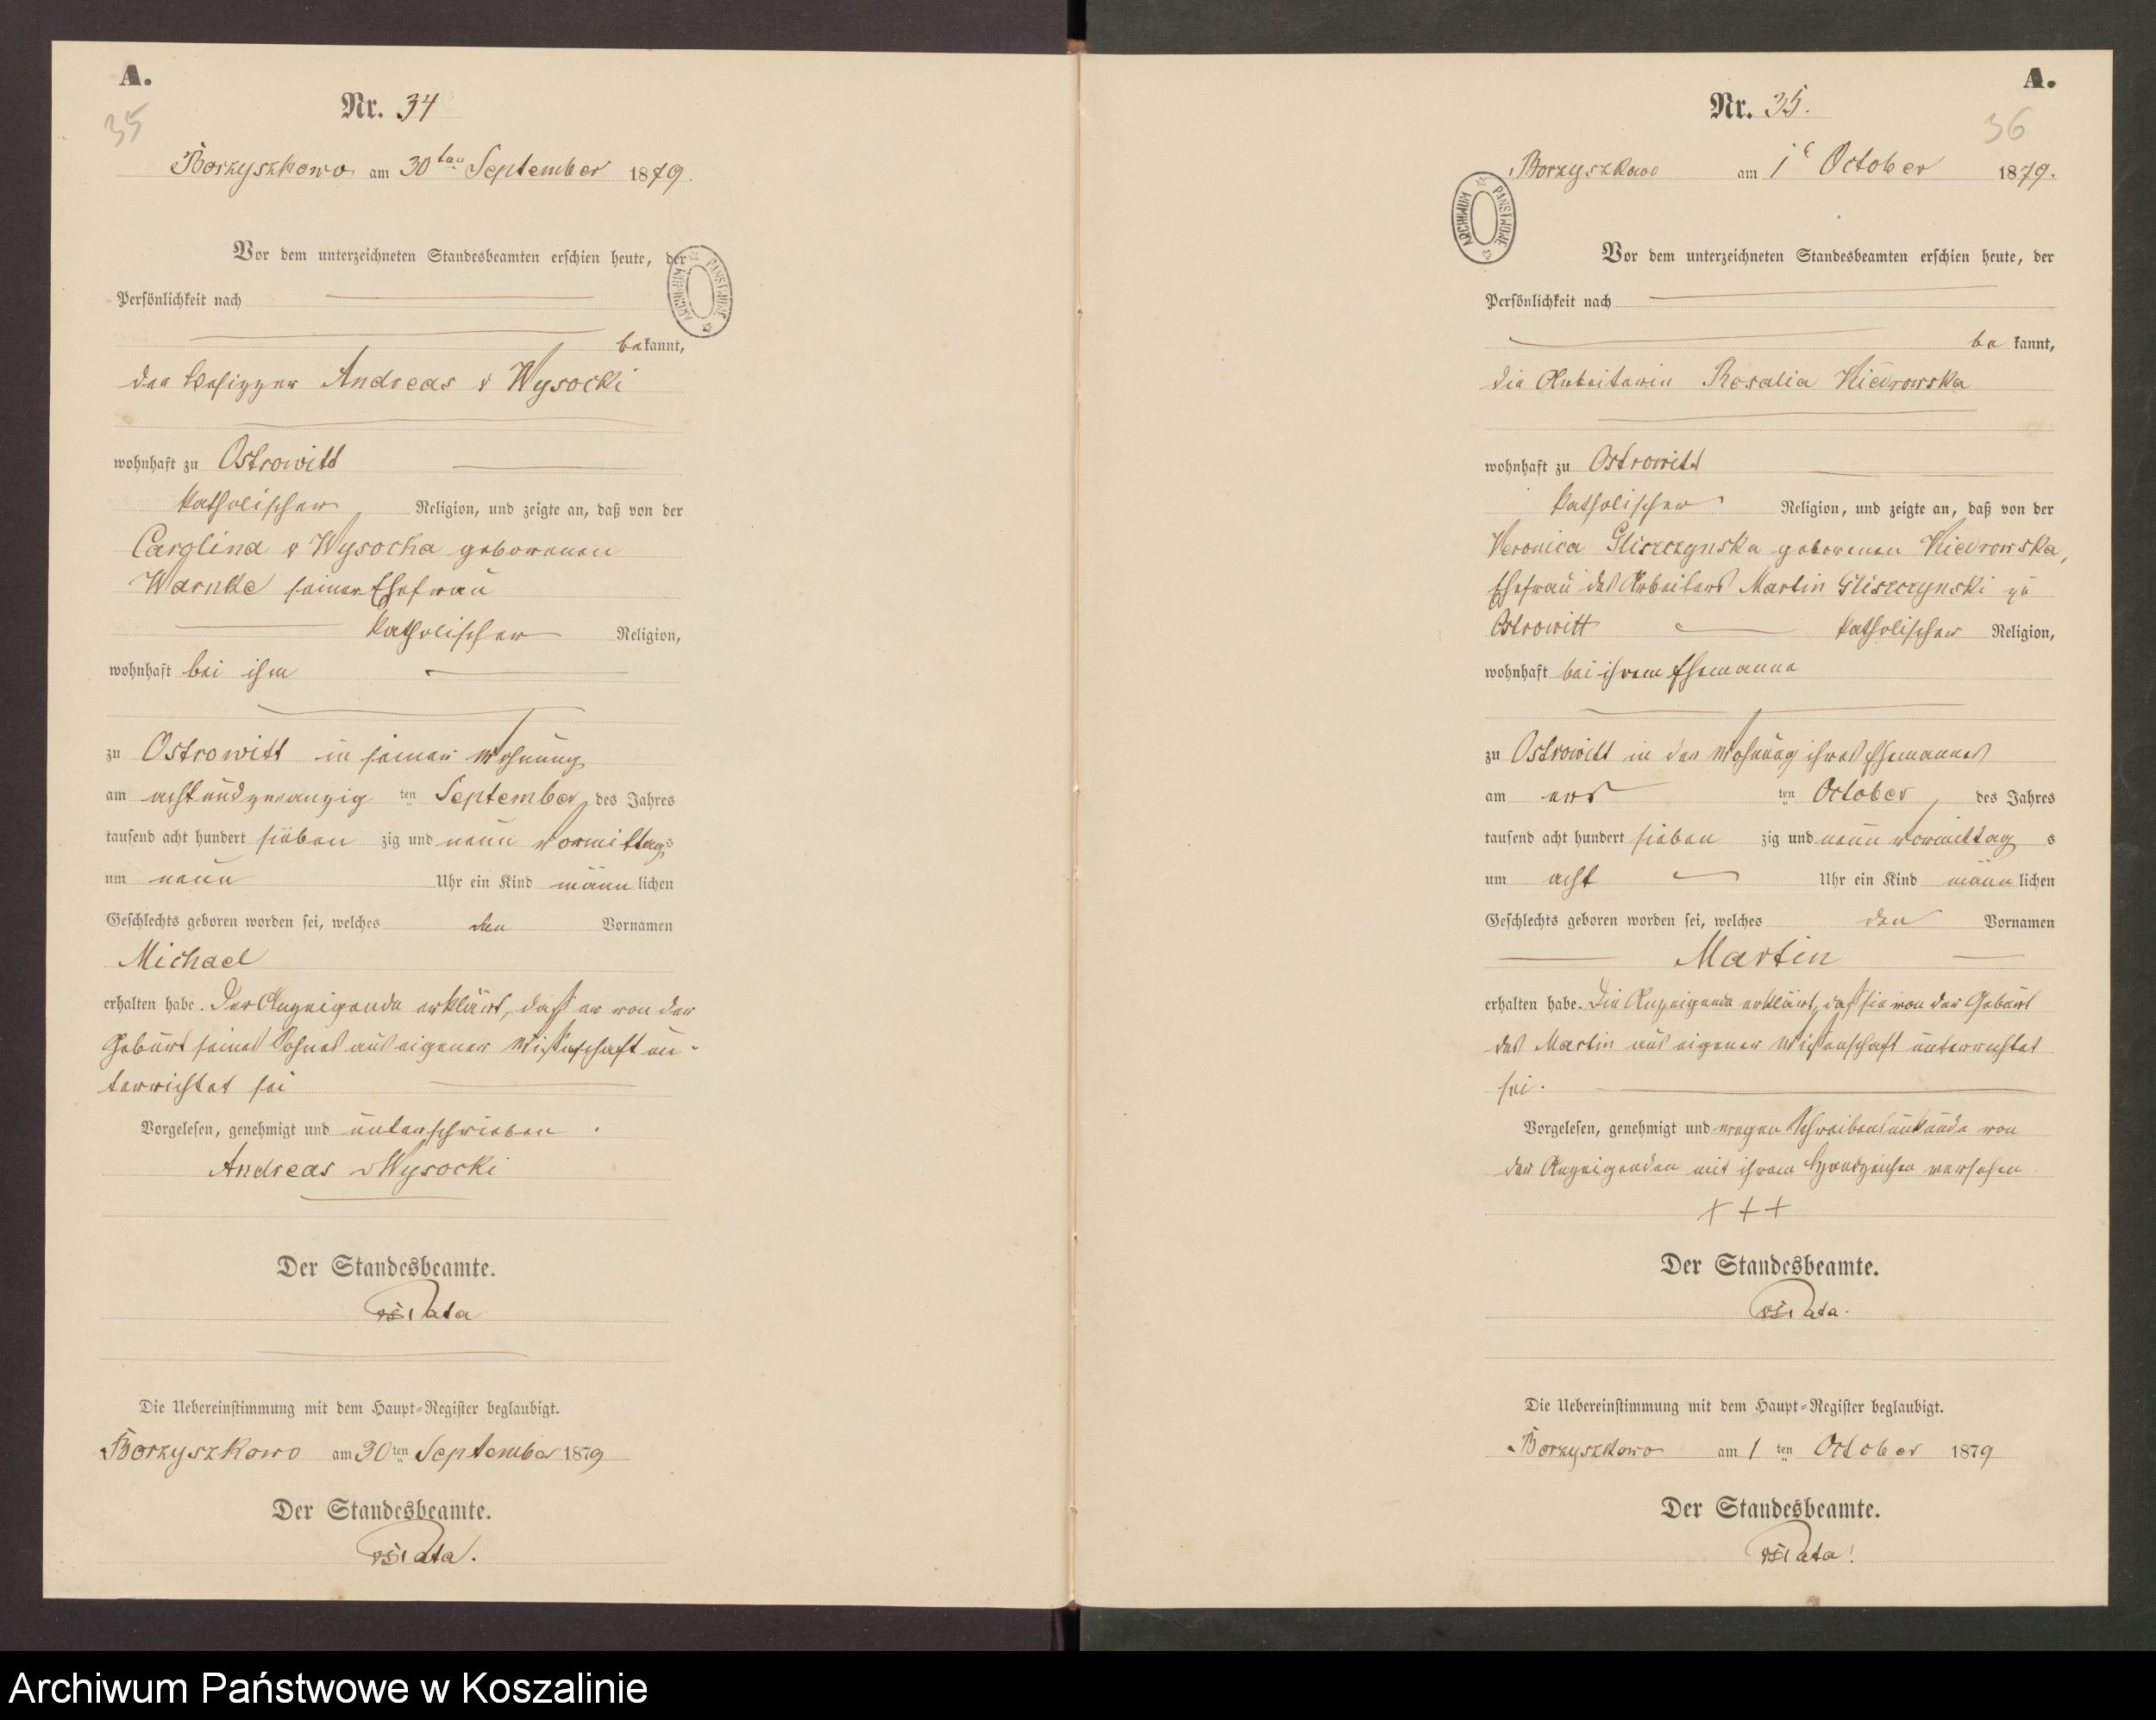 A.
35
Nr. 34
Borzyszkowo am 30ten September 1879.
Vor dem unterzeichneten Standesbeamten erschien heute, der
Persönlichkeit nach
bekannt,
der Besitzer Andreas v Wysocki
wohnhaft zu Ostrowitt
katholischer Religion, und zeigte an, daß von der
Carolina v Wysocka geborenen
Warnke seiner Ehefrau
katholischer Religion,
wohnhaft bei ihm
zu Ostrowitt in seiner Wohnung
am achtundzwanzig ten September des Jahres
tausend acht hundert sieben zig und neun Vormittags
um neun Uhr ein Kind männlichen
Geschlechts geboren worden sei, welches den Vornamen
Michael
erhalten habe. Der Anzeigende erklärt, daß er von der
Geburt seines Sohnes aus eigener Wissenschaft un-
terrichtet sei
Vorgelesen, genehmigt und unterschrieben.
Andreas v Wysocki
Der Standesbeamte.
Die Uebereinstimmung mit dem Haupt-Register beglaubigt.
Borzyszkowo am 30ten September 1879
Der Standesbeamte.
ARCHIWUM PAŃSTWOWE
A.
36
Nr. 35.
Borzyszkowo am 1t October 1879.
ARCHIWUM PAŃSTWOWE
Vor dem unterzeichneten Standesbeamten erschien heute, der
Persönlichkeit nach
be kannt,
die Arbeiterin Rosalia Kiedrowska
wohnhaft zu Ostrowitt
katholischer Religion, und zeigte an, daß von der
Veronica Gliszczynska geborenen Kiedrowska,
Ehefrau des Arbeiters Martin Gliszczynski zu
Ostrowitt katholischer Religion,
wohnhaft bei ihrem Ehemanne
zu Ostrowitt in der Wohnung ihres Ehemannes
am ers ten October, des Jahres
tausend acht hundert sieben zig und neun Vormittag s
um acht Uhr ein Kind männlichen
Geschlechts geboren worden sei, welches den Vornamen
Martin
erhalten habe. Die Anzeigende erklärt, daß sie von der Geburt
des Martin aus eigener Wissenschaft unterrichtet
sei.
Vorgelesen, genehmigt und wegen Schreibensunkunde von
der Anzeigenden mit ihrem Handzeichen versehen
+ + +
Der Standesbeamte.
Die Uebereinstimmung mit dem Haupt-Register beglaubigt.
Borzyszkowo am 1 ten October 1879
Der Standesbeamte.
Archiwum Państwowe w Koszalinie